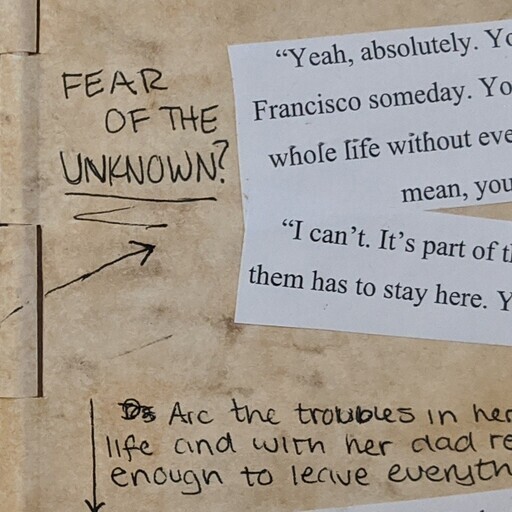 FEAR
OF THE
UNKNOWN?
“Yeah, absolutely. Yo
Francisco someday. Yo
whole life without eve
mean, you
“I can’t. It’s part of t
them has to stay here. Y
Are the troubles in her
life and with her dad re
enough to leave everyth